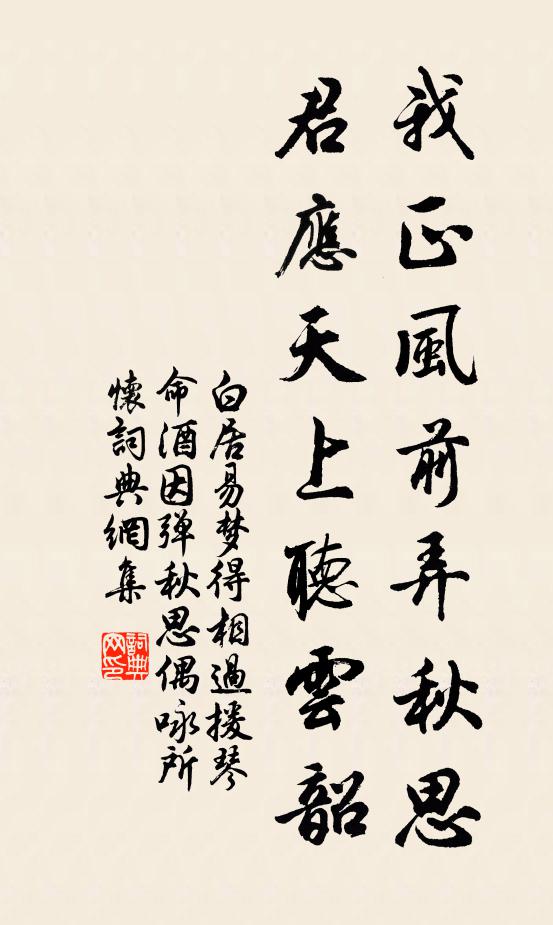 我正風前弄秋思
君應天上聽雲韶
白居易梦得相過援琴
命酒因弹秋思偶咏所
懷詞典網集
詞典
网印